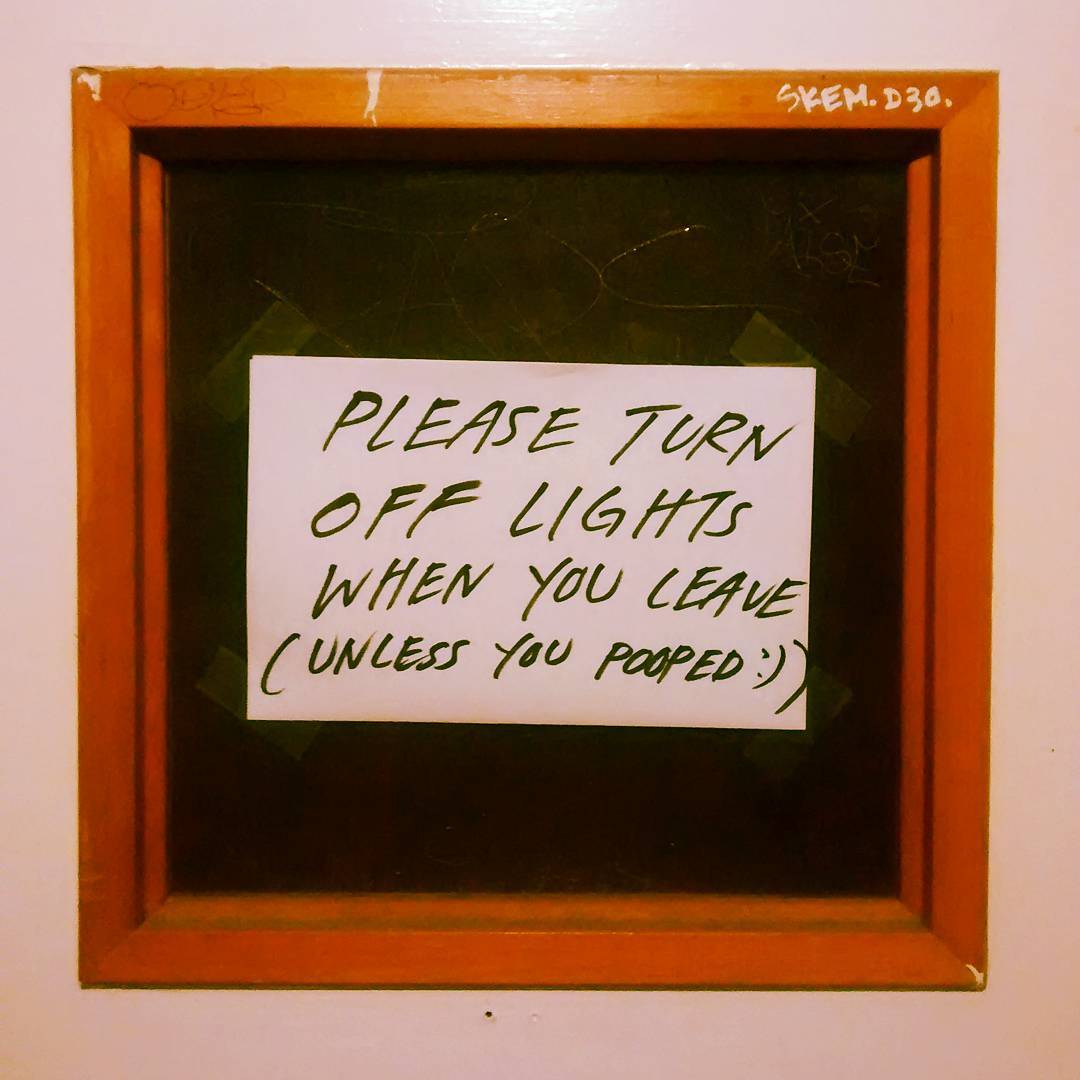 SKEM. D30.
PLEASE TURN
OFF LIGHTS
WHEN YOU LEAVE
(UNLESS YOU POOPED :))